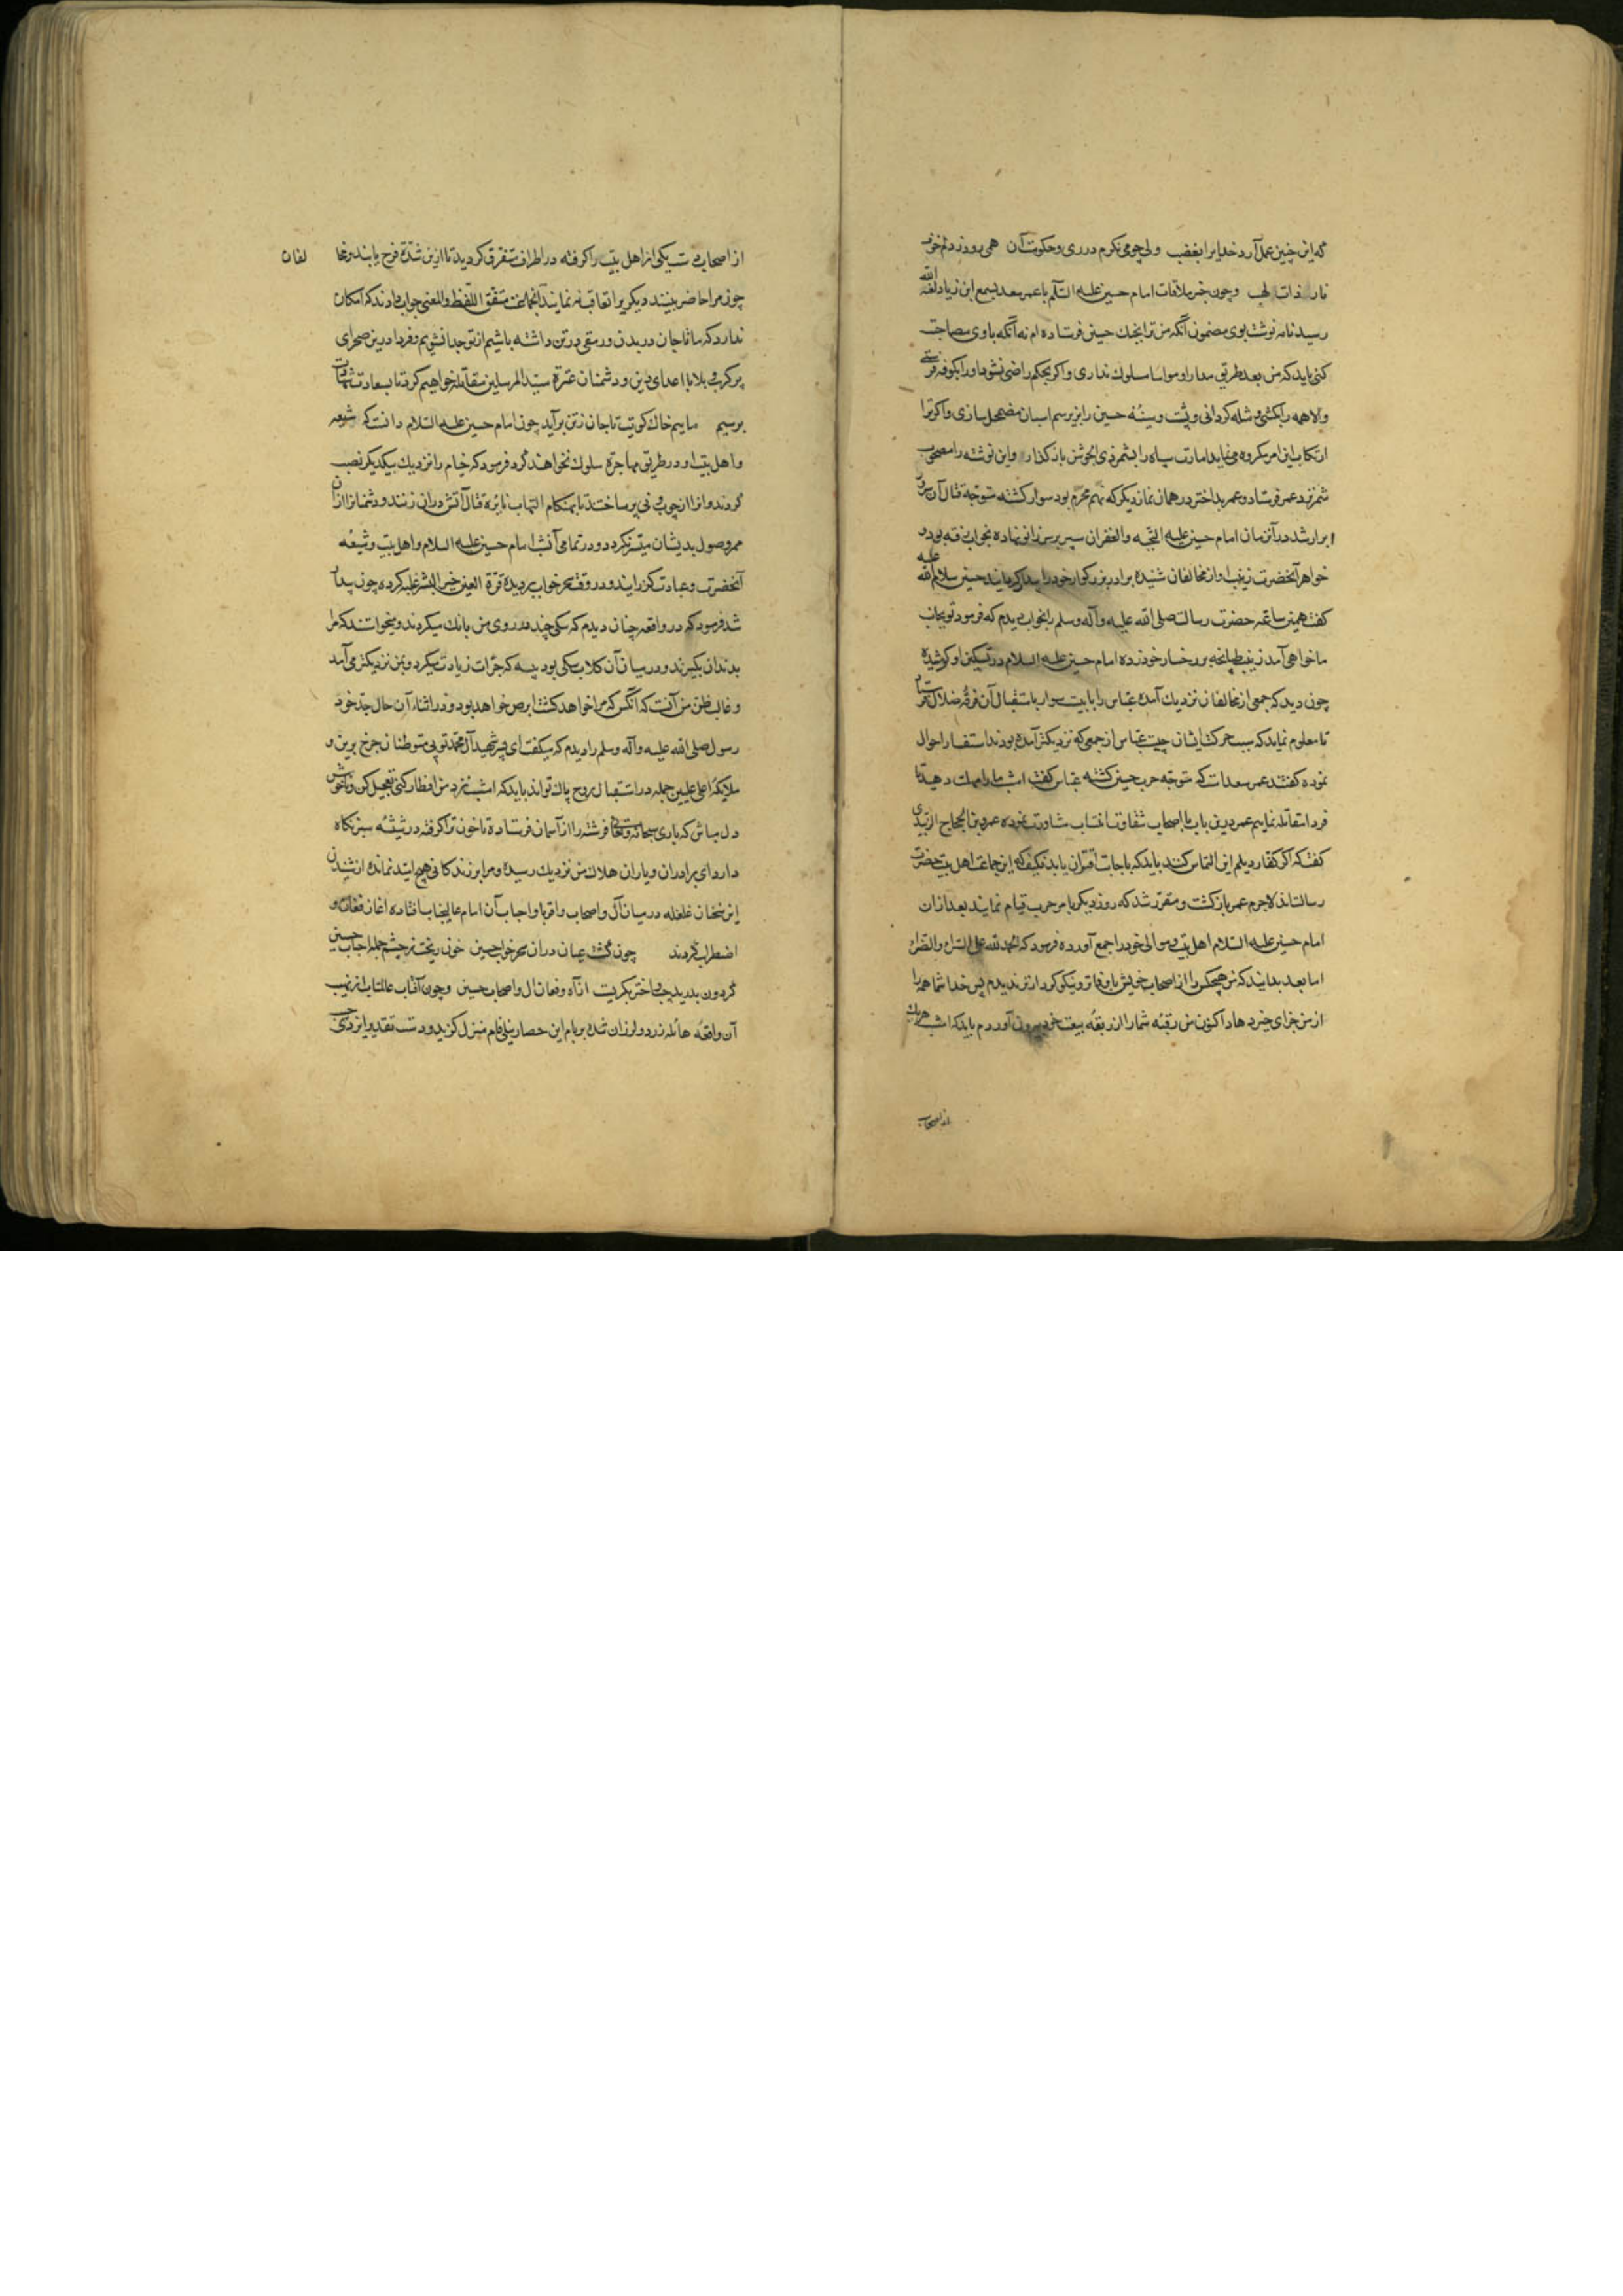 که این چنین عمل آرد خدایرا بغضب ولی چو می نکرم در ری و حکومت آن همی رود ز دلم خوف
نار ذات لهب و چون خبر ملاقات امام حسین علیه السلام با عمر سعد بسمع ابن زیاد لعنه الله
رسید نامه نوشت بوی مضمون آنکه من ترا بجنک حسین فرستاده ام نه آنکه باوی مصاحبت
کنی باید که من بعد طریق مدارا و مواسا مسلوک نداری و اگر بحکم راضی نشود او را بکوفه فرستی
والا همه را بکشی و مثله کردانی و پشت و سینه حسین را بزیر سم اسبان مضمحل سازی و اکر ترا
ارتکاب این امر مکروه می نماید امارت سپاه را بشمر ذی الجوشن باز کذار و این نوشته را مصحوب
شمر نزد عمر فرستاد و عمر بد اختر در همان نماز دیکر که نهم محرم بود سوار کشته متوجه قتال آن سرور
ابرار شد در آن زمان امام حسین علیه التحیه والغفران سر بر سر زانو نهاده بخواب رفته بود و
خواهر آنحضرت زینب آواز مخالفان شنیده برادر بزرکوار خود را بیدار کردانید حسین سلام الله علیه
کفت همین ساعة حضرت رسالت صلی الله علیه وآله وسلم را بخواب دیدم که فرمود تو بجانب
ما خواهی آمد زینب طپانچه بر رخسار خود زده امام حسین علیه السلام در تسکین او کوشیده
چون دید که جمعی از مخالفان نزدیک آمدند عباس را با بیست سوار باستقبال آن فرقه ضلال فرستاد
تا معلوم نماید که سبب حرکت ایشان چیست عباس از جمعی که نزدیکتر آمده بودند استفسار احوال
نموده کفتند عمر سعد است که متوجه حرب حسین کشته عباس کفت امشب ما را مهلت دهید تا
فردا مقاتله نماییم عمر درین باب با اصحاب شقاوت انتساب مشاورت نموده عمرو بن الحجاج الزبیدی
کفت که اکر کفار دیلم این التماس کنند باید که باجابت اقتران یابد فکیف که این جماعت اهل بیت حضرت
رسالت اند لاجرم عمر باز کشت و مقرر شد که روز دیکر بامر حرب قیام نمایند بعد از ان
امام حسین علیه السلام اهل بیت و موالی خود را جمع آورده فرمود که الحمد لله علی السراء والضراء
اما بعد بدانید که من هیچکس را از اصحاب خویش باوفاتر و نیکو کردارتر ندیدم پس خدا شما همه را
از من جزای خیر دهاد اکنون من رقبه شما را از ربقه بیعت خود بیرون آوردم باید که امشب هریک
از اصحاب
از اصحاب دست یکی از اهل بیت را کرفته در اطراف متفرق کردید تا ازین شدة فرج یابند و مخا لفان
چون مرا حاضر بینند دیکری را تعاقب ننمایند آنجماعت متفق اللفظ والمعنی جواب دادند که امکان
ندارد که ما تا جان در بدن و رمقی در تن داشته باشیم از تو جدا نشویم و فردا درین صحرای
پر کرب و بلا با اعدای دین و دشمنان عترة سید المرسلین مقاتله خواهیم کرد تا بسعادت شهادت
برسیم ماییم خاک کویت تا جان ز تن برآید چون امام حسین علیه السلام دانست که شیعه
و اهل بیت او در طریق مهاجرة سلوک نخواهند کرد فرمود که خیام را نزدیک بیکدیکر نصب
کردند و از چوب و نی پر ساختند تا بهنکام التهاب نایره قتال آتش دران زنند و دشمنان را ازان
ممر وصول بدیشان میسر نکردد و در تمامی آنشب امام حسین علیه السلام و اهل بیت و شیعه
آنحضرت بعبادت کذرانیدند و در وقت سحر خواب بر دیده قرة العین خیر البشر غلبه کرده چون بیدار
شد فرمود که در واقعه چنان دیدم که سکی چند در روی من بانک میکردند و میخواستند که مرا
بدندان بکیرند و در میان آن کلاب سکی بود پیسه که جرات زیادت میکرد و بمن نزدیکتر می آمد
و غالب ظن من آنست که آنکس که مرا خواهد کشت ابرص خواهد بود و در اثناء آن حال جد خود
رسول صلی الله علیه وآله وسلم را دیدم که میکفت ای پسر شهید آل محمد تویی متوطنان چرخ برین و
ملایکه اعلی علیین جمله در استقبال روح پاک تواند باید که امشب نزد من افطار کنی تعجیل کن و ناخوش
دل مباش که باری سبحانه وتعالی فرشته را از آسمان فرستاده تا خون ترا کرفته در شیشه سبز نکاه
دارد ای برادران و یاران هلاک من نزدیک رسیده و مرا بر زندکانی هیچ امید نمانده از شنیدن
این سخنان غلغله در میان آل و اصحاب و اقربا و احباب آن امام عالیجناب افتاده آغاز فغان و
اضطراب کردند چون کشت عیان دران سحر خواب حسین خون ریخت ز چشم جمله احباب حسین
کردون بدرید جیب و اختر بکریست از آه و فغان ال و اصحاب حسین و چون آفتاب عالمتاب از نهیب
آن واقعه هائله زرد و لرزان شده بر بام این حصار نیلی فام منزل کزید و دست تقدیر ایزدی